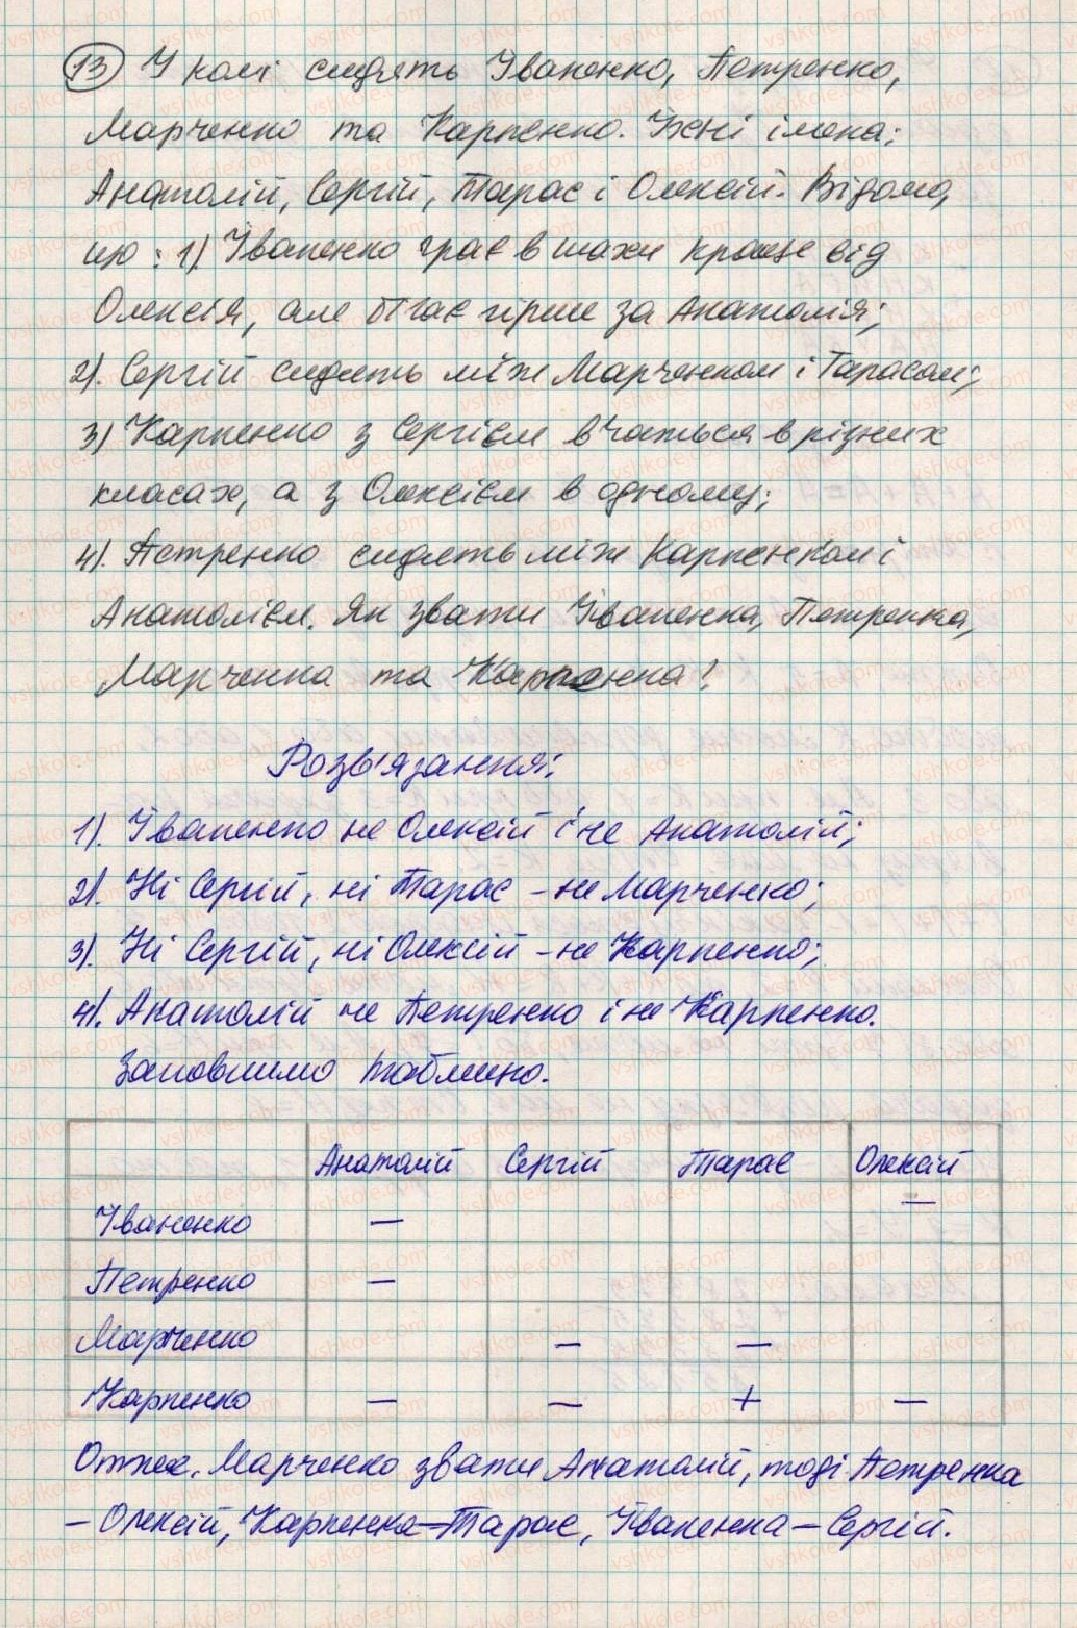 13 У колі сидять Іваненко, Петренко,
Марченко та Карпенко. Їхні імена:
Анатолій, Сергій, Тарас і Олексій. Відомо,
що: 1) Іваненко грає в шахи краще від
Олексія, але бігає гірше за Анатолія;
2). Сергій сидить між Марченком і Тарасом;
3) Карпенко з Сергієм вчаться в різних
класах, а з Олексієм в одному;
4). Петренко сидить між Карпенком і
Анатолієм. Як звати Іваненка, Петренка,
Марченка та Карпенка?
Розв'язання:
1). Іваненко не Олексій і не Анатолій;
2). Ні Сергій, ні Тарас - не Марченко;
3). Ні Сергій, ні Олексій - не Карпенко;
4). Анатолій не Петренко і не Карпенко.
Заповнимо таблицю.
Анатолій Сергій Тарас Олексій
Іваненко — —
Петренко —
Марченко — —
Карпенко — — + —
Отже, Марченко звати Анатолій, тоді Петренка
- Олексій, Карпенка - Тарас, Іваненка - Сергій.